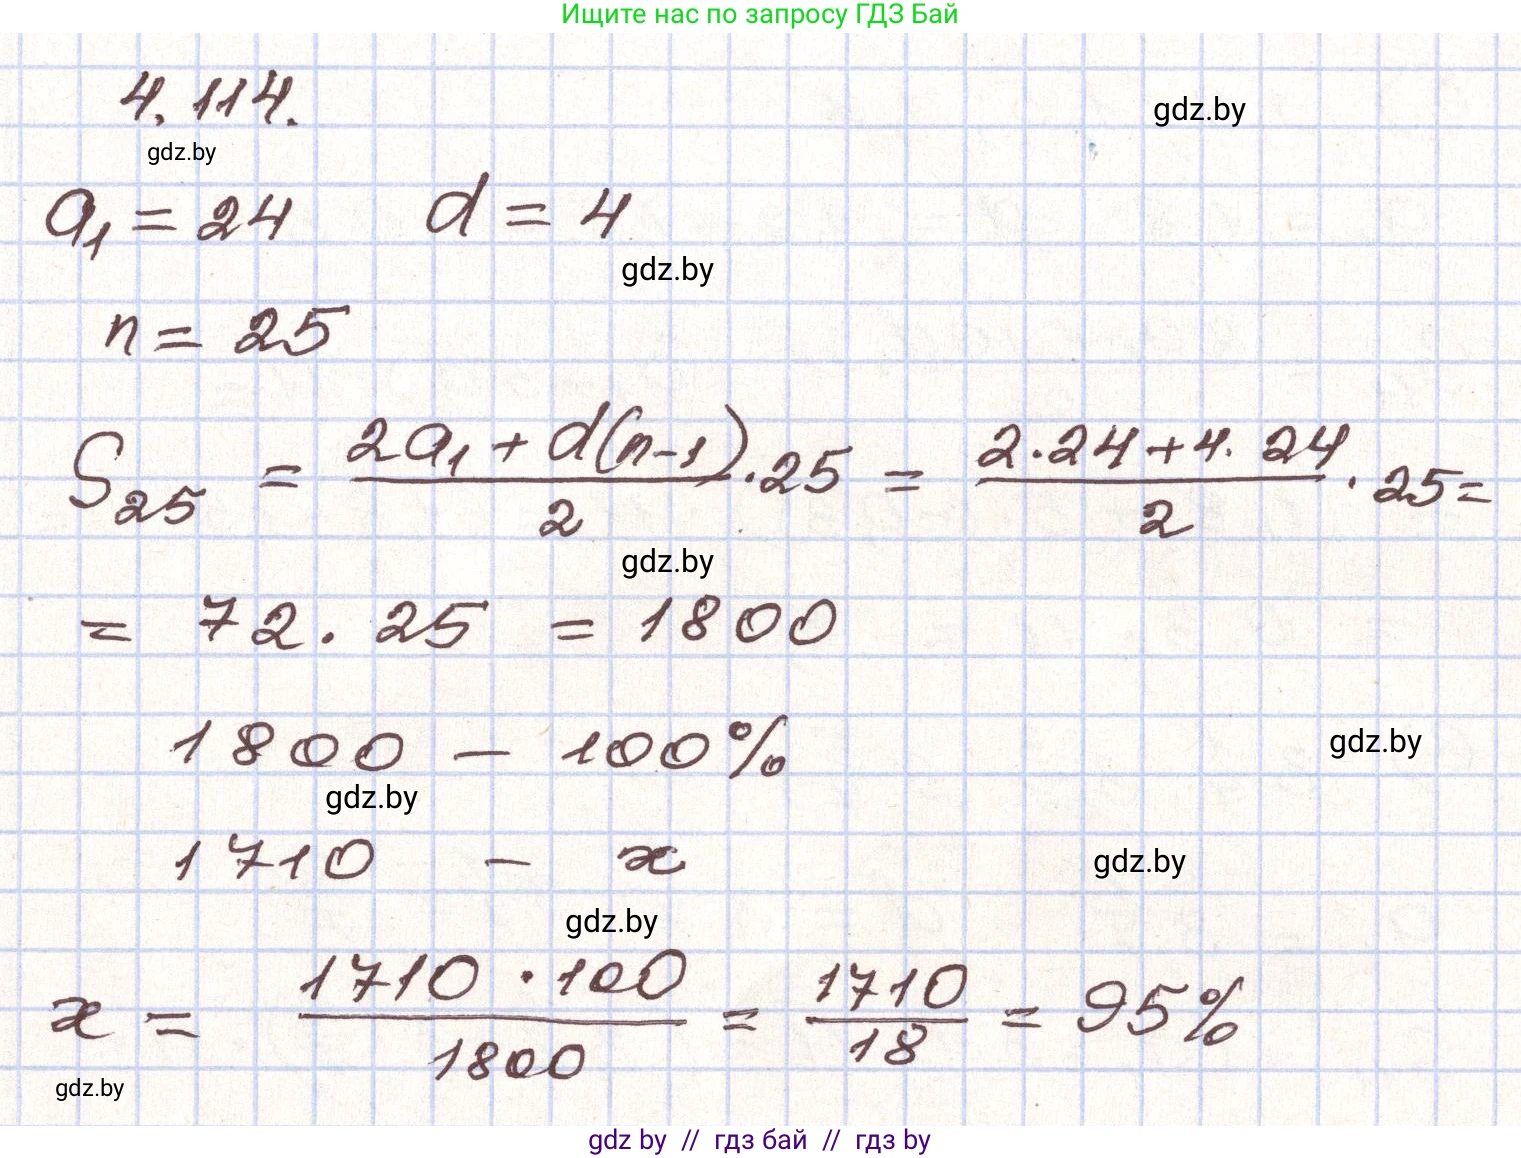 Ищите нас по запросу ГДЗ Бай
4.114.
gdz.by
gdz.by
a₁ = 24 d = 4
gdz.by
n = 25
S₂₅ = (2a₁ + d(n-1))/2 · 25 = (2·24+4·24)/2 · 25 =
gdz.by
= 72 · 25 = 1800
1800 – 100%
gdz.by
gdz.by
1710 – x
gdz.by
gdz.by
x = (1710 · 100)/1800 = 1710/18 = 95%
gdz.by
gdz by // гдз бай // гдз by